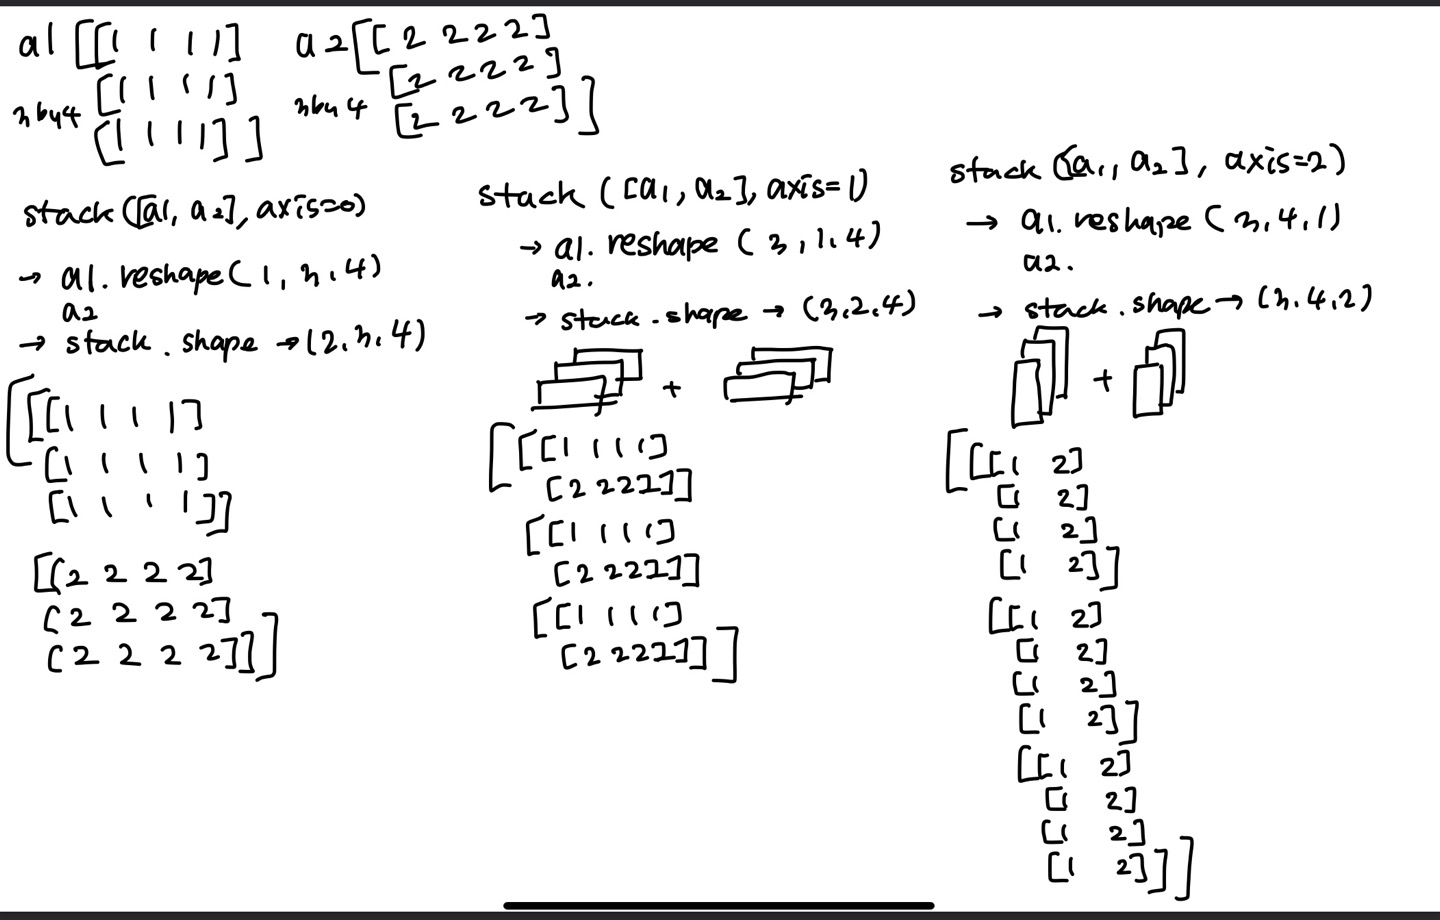 a1 [[1 1 1 1]
[1 1 1 1]
[1 1 1 1]]
3by4
a2 [[2 2 2 2]
[2 2 2 2]
[2 2 2 2]]
3by4
stack([a1, a2], axis=0)
→ a1.reshape(1, 3, 4)
a2
→ stack.shape → (2, 3, 4)
[[[1 1 1 1]
[1 1 1 1]
[1 1 1 1]]
[[2 2 2 2]
[2 2 2 2]
[2 2 2 2]]]
stack([a1, a2], axis=1)
→ a1.reshape(3, 1, 4)
a2.
→ stack.shape → (3, 2, 4)
+
[[[1 1 1 1]
[2 2 2 2]]
[[1 1 1 1]
[2 2 2 2]]
[[1 1 1 1]
[2 2 2 2]]]
stack([a1, a2], axis=2)
→ a1.reshape(3, 4, 1)
a2.
→ stack.shape → (3, 4, 2)
+
[[[1 2]
[1 2]
[1 2]
[1 2]]
[[1 2]
[1 2]
[1 2]
[1 2]]
[[1 2]
[1 2]
[1 2]
[1 2]]]